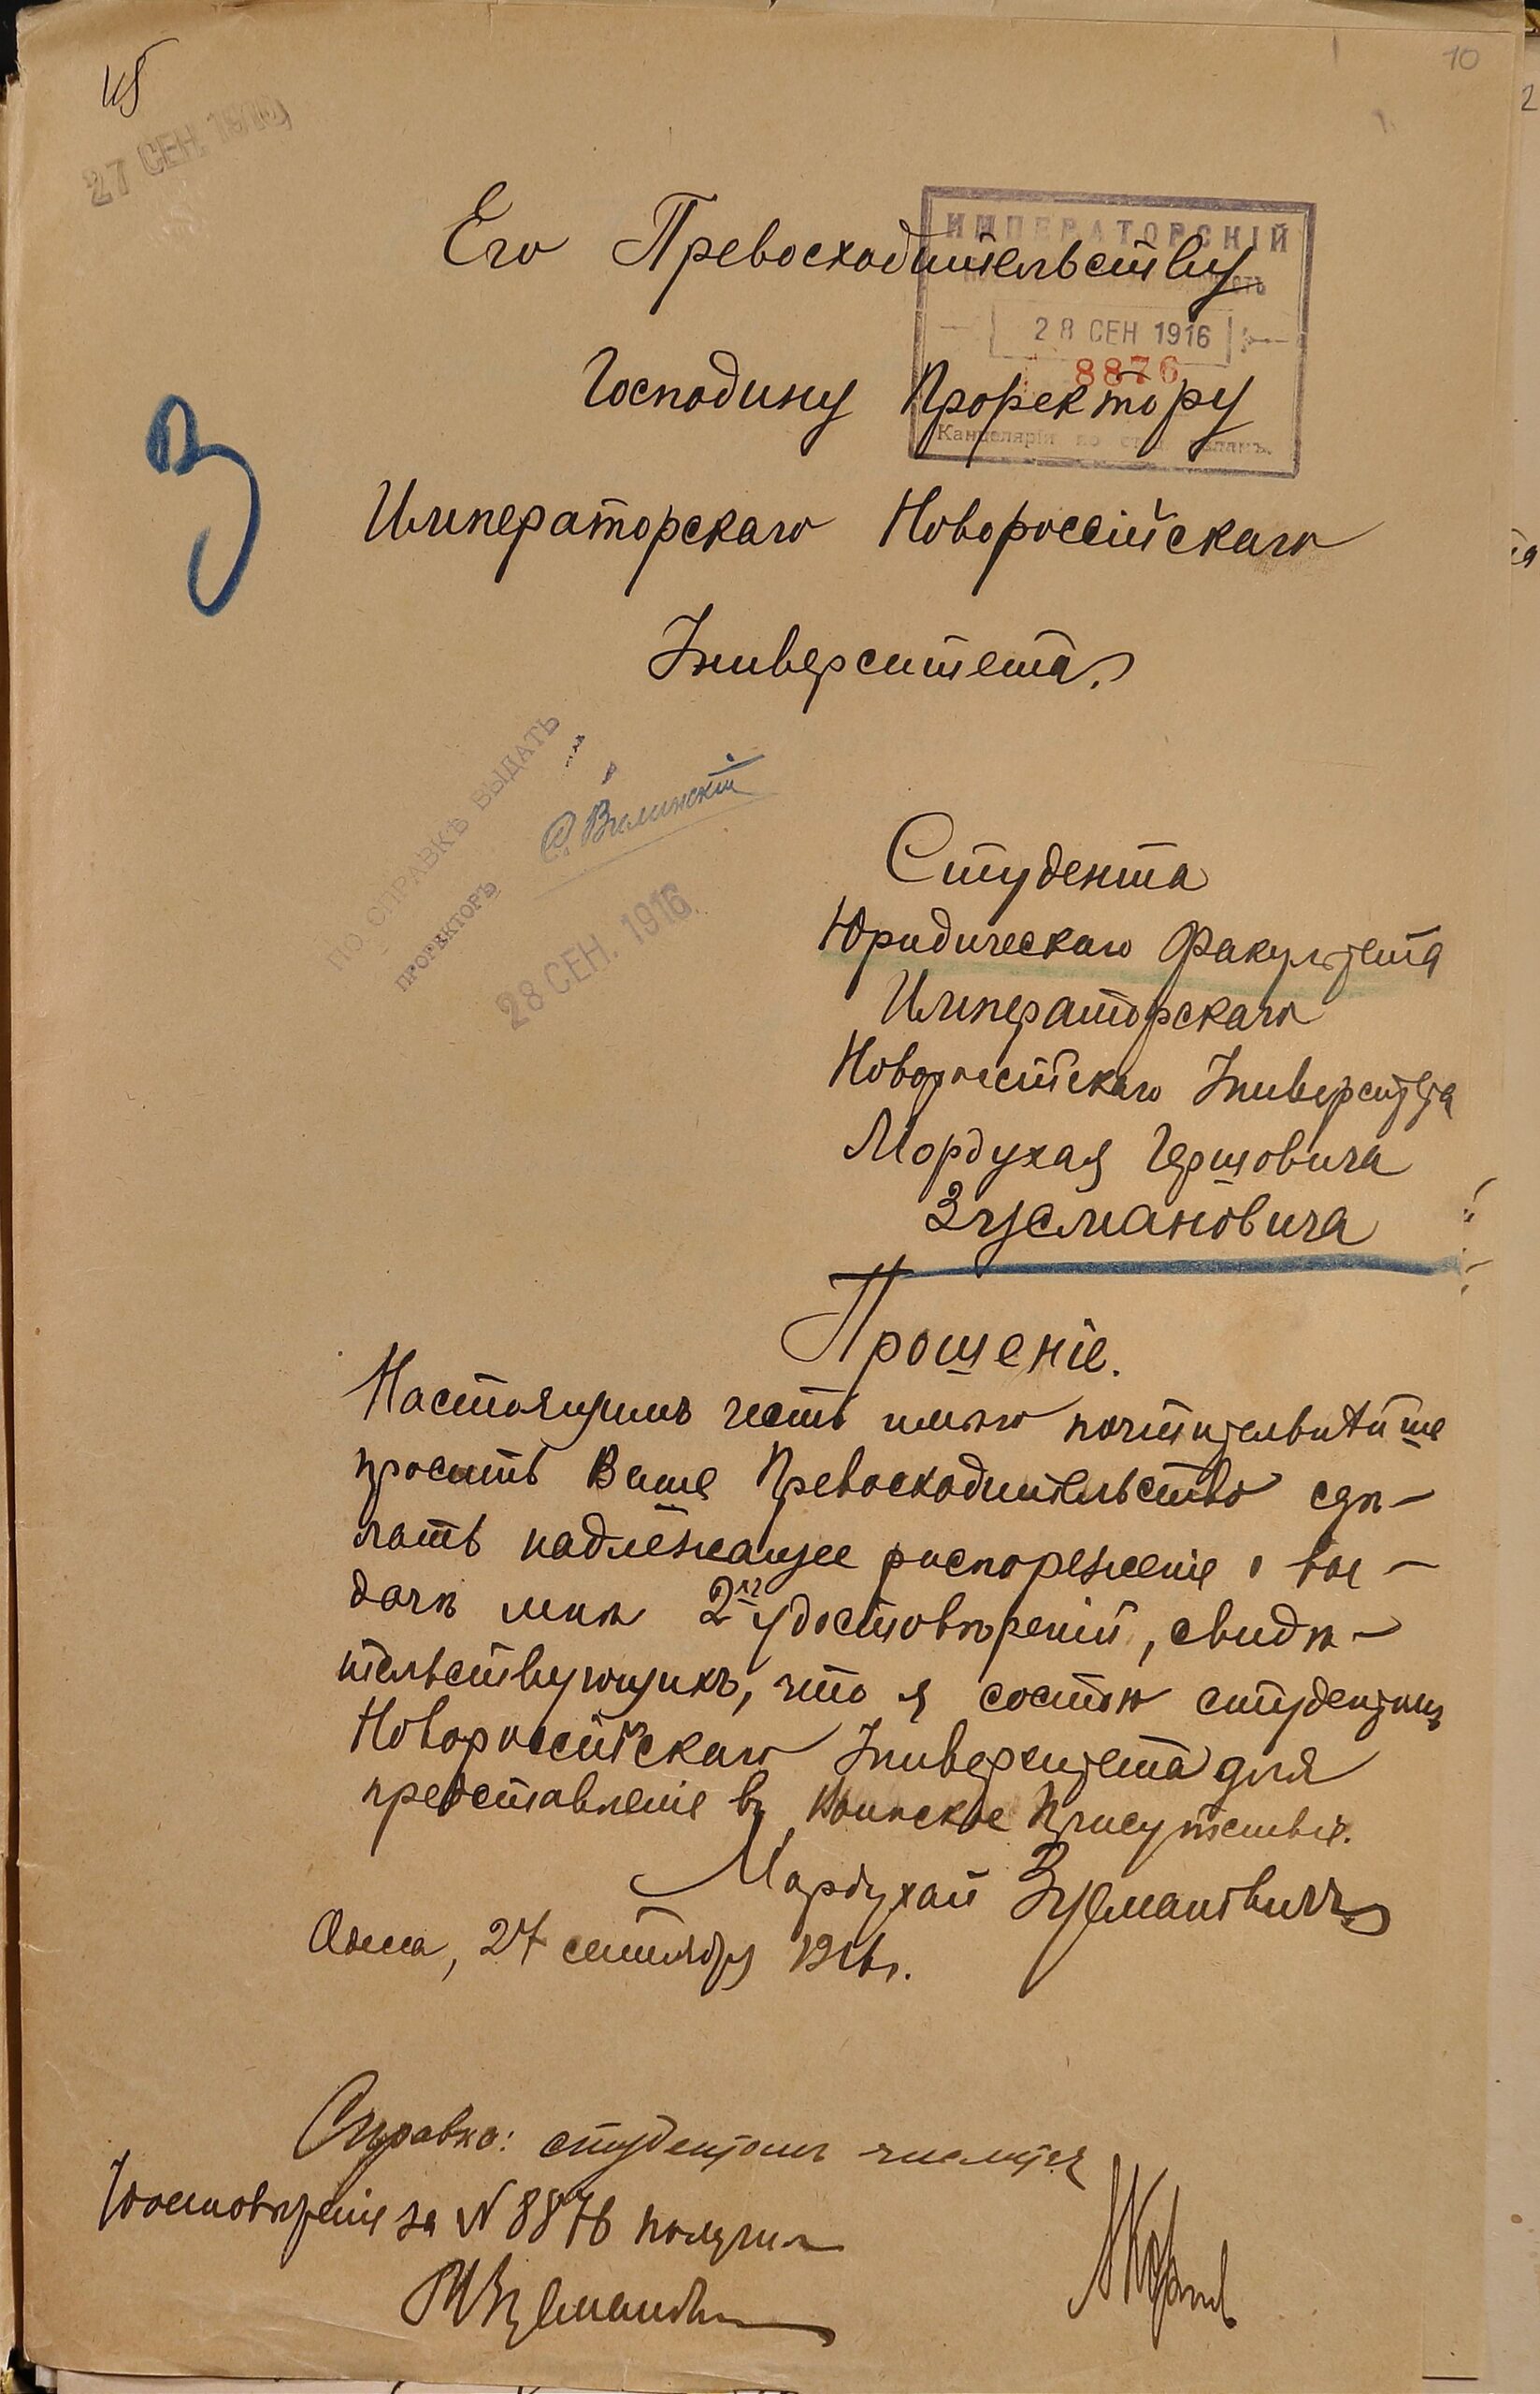 10
27 СЕН 1916
Его Превосходительству
ИМПЕРАТОРСКІЙ
28 СЕН 1916
8876
Господину Проректору
Канцелярія по студ
Императорскаго Новороссійскаго
Университета.
ПО СПРАВКѢ ВЫДАТЬ
ПРОРЕКТОРЪ
28 СЕН. 1916
Студента
Юридическаго Факультета
Императорскаго
Новороссійскаго Университета
Мордухая Гершовича
Зусмановича
Прошеніе.
Настоящимъ честь имѣю почтительнѣйше
просить Ваше Превосходительство сдѣ-
лать надлежащее распореженіе о вы-
дачѣ мнѣ 2хъ удостовѣреній, свидѣ-
тельствующихъ, что я состою студентомъ
Новороссійскаго Университета для
представленіе въ Воинское Присутствіе.
Мордухай Зусмановичъ
Одесса, 27 сентября 1916 г.
Справка: студентомъ числится
Удостовѣреніе за N 8876 получилъ
МЗусманович